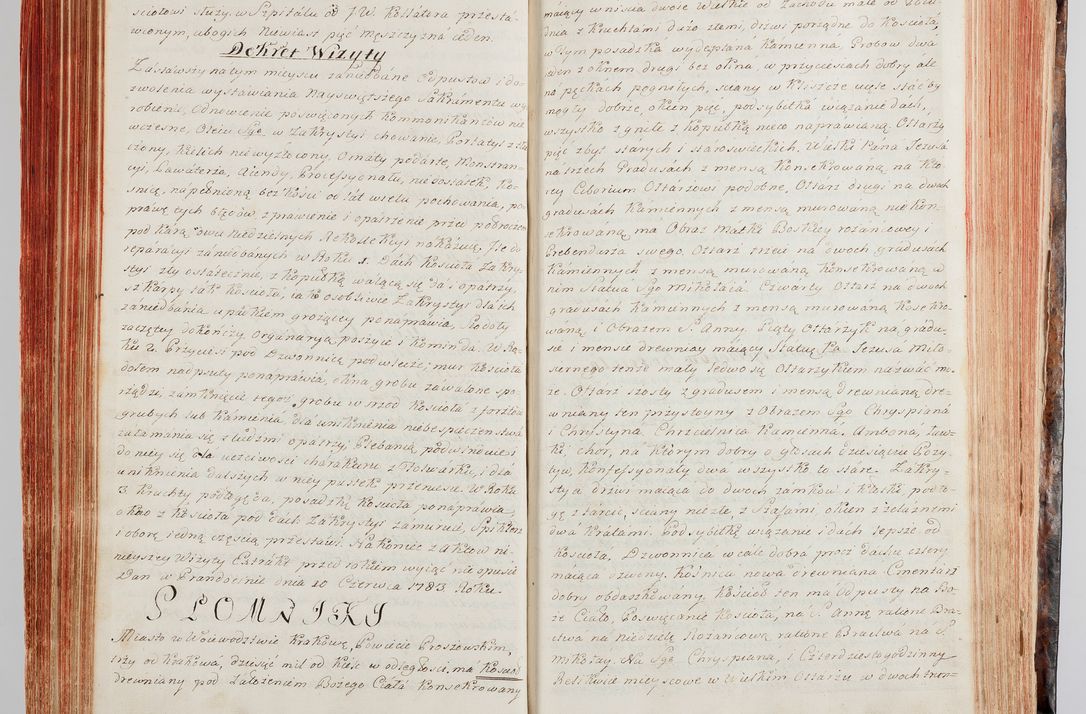 sciołowi służy. w Szpitálu od J.W. Kollátora przestá-
wionym, ubogich Niewiast pięć mężczyzná ieden.
Dekret Wizyty
Zástawszy ná tym mieyscu zániedbáne Odpustow i do-
zwolenia wystáwiania Nayswiętszego Sakrámentu wy-
robienie, Odnowienie poświęconych Kommonikántow nie
wczesne, Oleiu Sgo w Zakrystyi chowanie, Portátyl
cony, Kielich niewyzłocony, Ornáty podárte, Konstran-
cyi, Láwáterza, Aiendy, Processyonáłu, niedostátek, Ko-
snicę nápełnioną bez Kości od lát wielu pochowánia, po-
práwę tych błędow, spráwienie i opátrzenie przed półroczem
pod kárą 2wu niedzielnych Rekollekcyi nákázuię. Ize do
reparácyi zániedbánych w Roku 1. Dách Kościoła Zákry-
styi zły ostátecznie, z Kopułką wálącą się dá i opátrzy,
szkárpy ták Kościołá, iáko osobliwie Zákrystyi dla ich
zániedbánia upadkiem grożącey ponápráwia, Stodoły
záczętey dokończy, Orgánaryą poszyie i Komin dá. W Ro-
ku 2. Przyciesi pod Dzwonnicą podwlecze; mur Kościołá
dołem nádpsuty ponápráwia, okna grobu záwálone spo-
rządzi, zámknięcie tegoż grobu wśrzod Kościołá z forsztow
grubych lub Kámieniá, dlá uniknienia niebespieczenstwá
záłámánia się z ludzmi opátrzy, Plebánią podwálinuie i
do niey się dla ucziwości chárákteru z Folwárku, i dla
uniknienia dálszych w niey pustek przeniesie. W Roku
3. Kruchty podłogą dá, posádzkę Kościołá ponápráwia,
okno z Kościołá pod dách Zákrystyi zámuruie, Spiklerz
i oborę iedną częścią przestáwi. Nákoniec z Aktow ni-
nieyszey Wizyty Extrákt przed rokiem wyiąć nie opuści
Dan w Prandocinie dnia 10 Czerwca 1783 Roku.
PŁOMNIKI
Miasto w Woiewodztwie Krakows. Powiecie Proszowskim,
trzy od Krákowá, dziesięć mil od Kielc w odległości, má Kościoł
drewniány pod záłożeniem Bożego Ciáłá Konsekrowány
máiący wniścia dwoie Wielkie od Zachodu máłe od Połu-
dnia z Kruchtámi dázo złemi, drzwi porządne do Kościołá,
w tym posádzka wydeptána Kámienna. Grobow dwá
ieden z oknem drugi bez okná, w przyciesiách dobry ále
ná pęckách pogniłych, sciany w Kleszcze uięte stáć by
mogły dobrze, okien pięć, podsybitká wiązánie dách,
wszystko zgniłe z kopułką nieco napráwianą. Ołtarzy
pięć zbyt stárych i stároswieckich. Wielki Pána Jezusá
ná trzech Grádusách z mensą Konsekrowáną ná Kto-
rey Ciborium Ołtarzowi podobne, Ołtarz drugi ná dwoch
grádusách Kámiennych z mensą murowáną nie kon-
sekrowáną má Obraz Mátki Boskiey rożáncowey i
Prebendarza swego. Ołtarz trzeci ná dwoch grádusách
Kámiennych z mensą murowáną Konsekrowáną w
nim Statua Sgo Mikołáiá. Czwarty Ołtarz ná dwoch
gradusach Kámiennych z mensą murowáną Konsekro-
wáną, i Obrazem S. Anny. Piąty Ołtarzyk ná grádu-
sie i mensie drewniáney máiący Státuę Pá. Jezusá Miło-
siernego tenże máły ledwo się Ołtarzykiem názwáć mo-
że. Ołtarz szosty z grádusem i mensą drewniáną dre-
wniány ten przystoyny z Obrazem Sgo Chryspiána
i Chrystyna. Chrzcielnica Kámienná, Ambona, Ław-
ki, chor, ná Ktorym dobry o głosách dziesięciu Pozy-
tyw, Konfessyonáły dwá wszystko to stáre. Zakry-
stya drzwi máiąca do dwoch zamkow i Kłotki, podło-
gę z tárcic, sciany nie złe, z Száfámi, okien z żeláznemi
dwá krátámi. Podsybitká wiązánie i dách lepsze od
Kościołá, Dzwonnicá wcále dobra procz dachu cztery
máiąca dzwony. Kośnica nowa drewniana Cmentarz
dobry obdászkowány. Kościoł ten má Odpusty ná Bo-
że Ciáło, Poswięcanie Kościołá, ná S. Annę rátione Bra-
ctwa ná niedzielę Rożáncową rátione Bráctwá ná S.
Mikołay. Ná Sgo Chryspiana, i Czterdziestogodzinny
Relikwie mieyscowe w Wielkim Ołtarzu w dwoch tren-